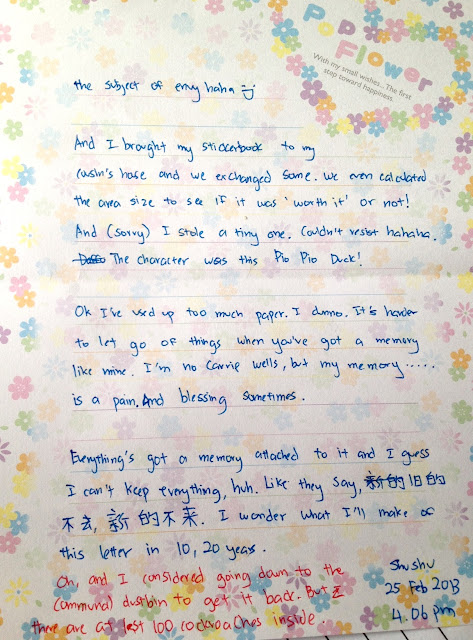 POP
Flower
With my small wishes... The first
step toward happiness
the subject of envy haha
And I brought my stickerbook to my
cusin's hose and we exchanged some. We even calculated
the area size to see if it was 'worth it' or not!
And (sorry) I stole a tiny one. Couldn't resist hahaha.
The character was this Pio Pio Duck!
Ok I've used up too much paper. I dunno. It's harder
to let go of things when you've got a memory
like mine. I'm no Carrie Wells, but my memory.....
is a pain. And blessing sometimes.
Everything's got a memory attached to it and I guess
I can't keep everything, huh. Like they say, 新的 旧的
不去, 新的不来. I wonder what I'll make of
this letter in 10, 20 years.
Oh, and I considered going down to the
communal dustbin to get it back. But
there are at least 100 cockroaches inside.
Shushu
25 Feb 2013
4.06 pm